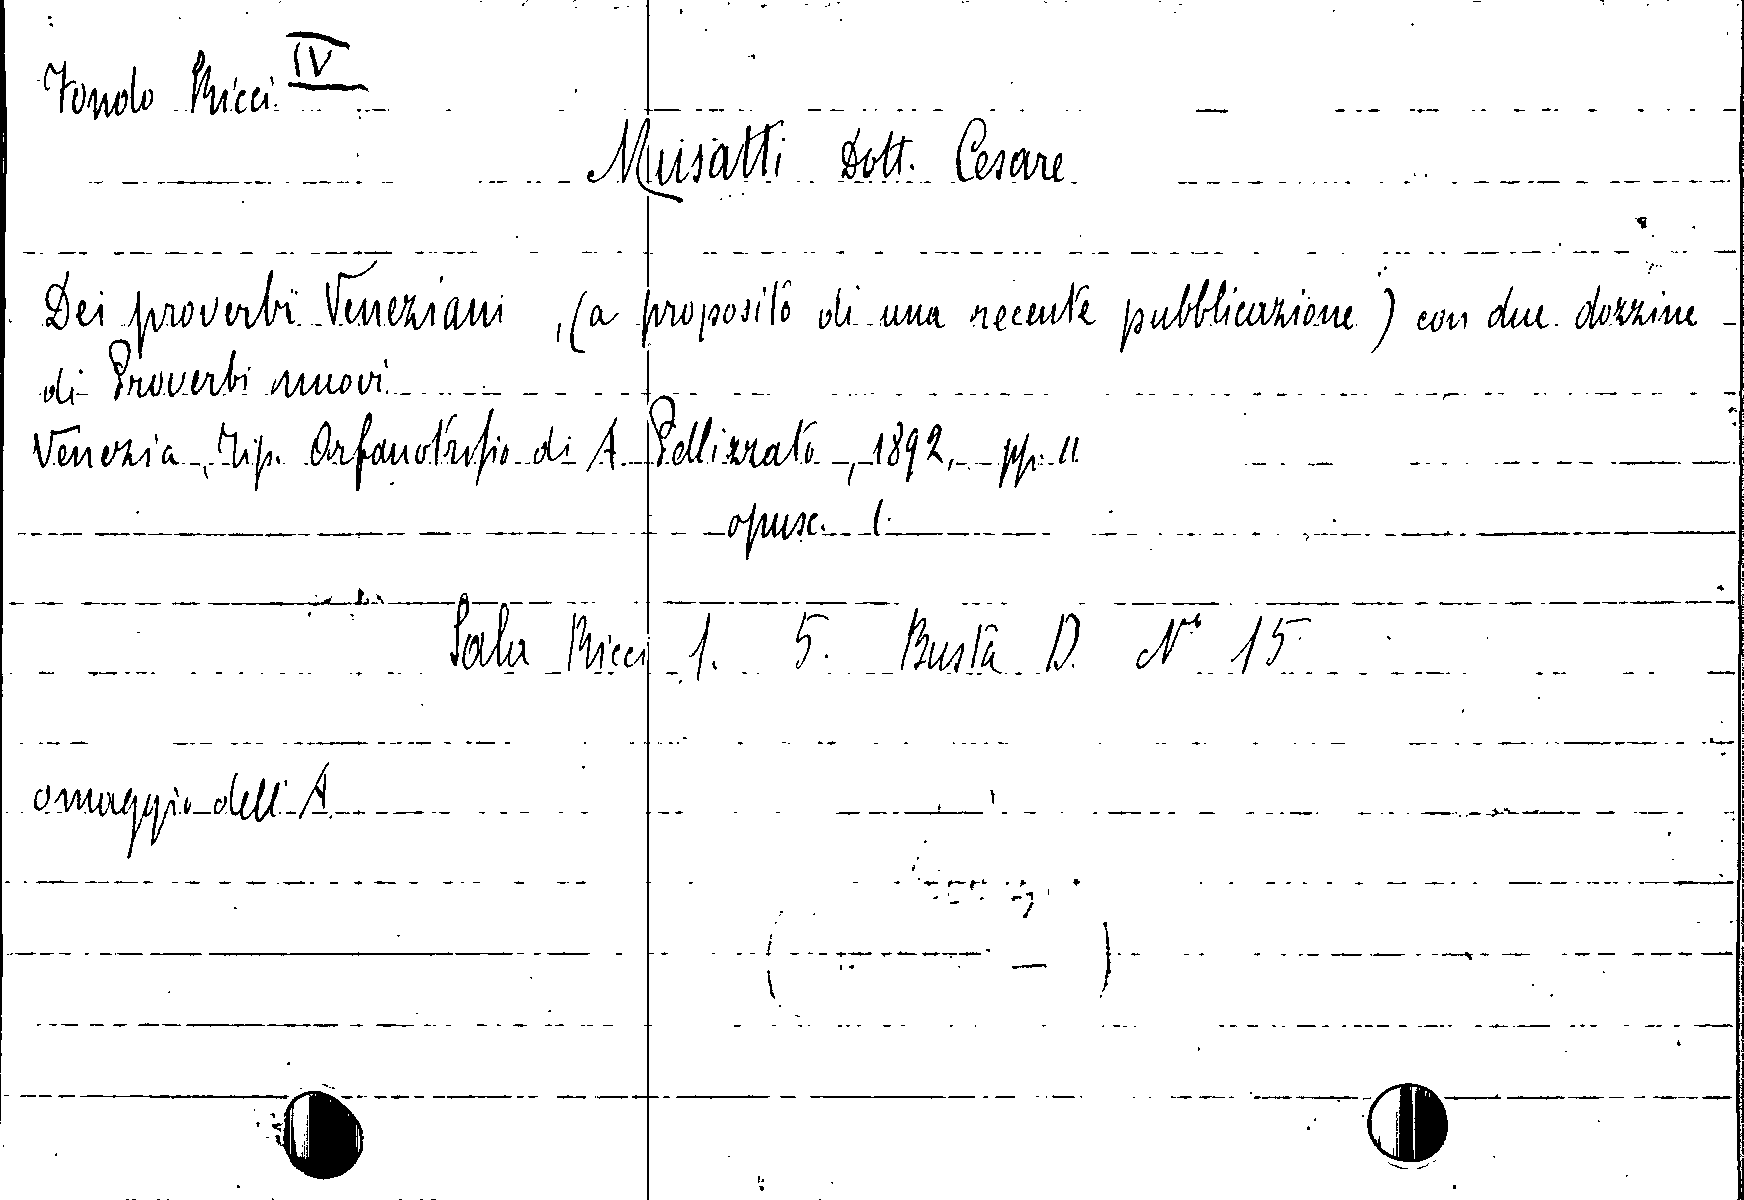 Fondo Ricci IV
Musatti Dott. Cesare
Dei proverbi Veneziani, (a proposito di una recente pubblicazione) con due dozzine
di Proverbi nuovi
Venezia, Tip. Orfanotrofio di A Pellizzato, 1892, pp. 11
opusc. 1.
Sala Ricci 1. 5. Busta D. N° 15
omaggio dell'A